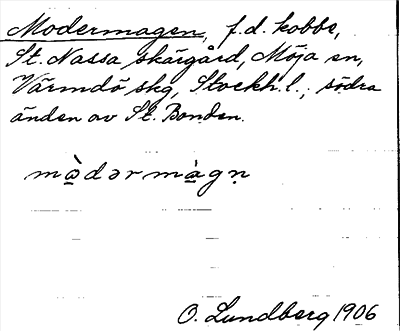 Modermagen, f.d. kobbe,
St. Nassa skärgård, Möja sn,
Värmdö skg, Stockh. l.; södra
änden av St. Bonden.
màdərmàgn̥
O. Lundberg 1906